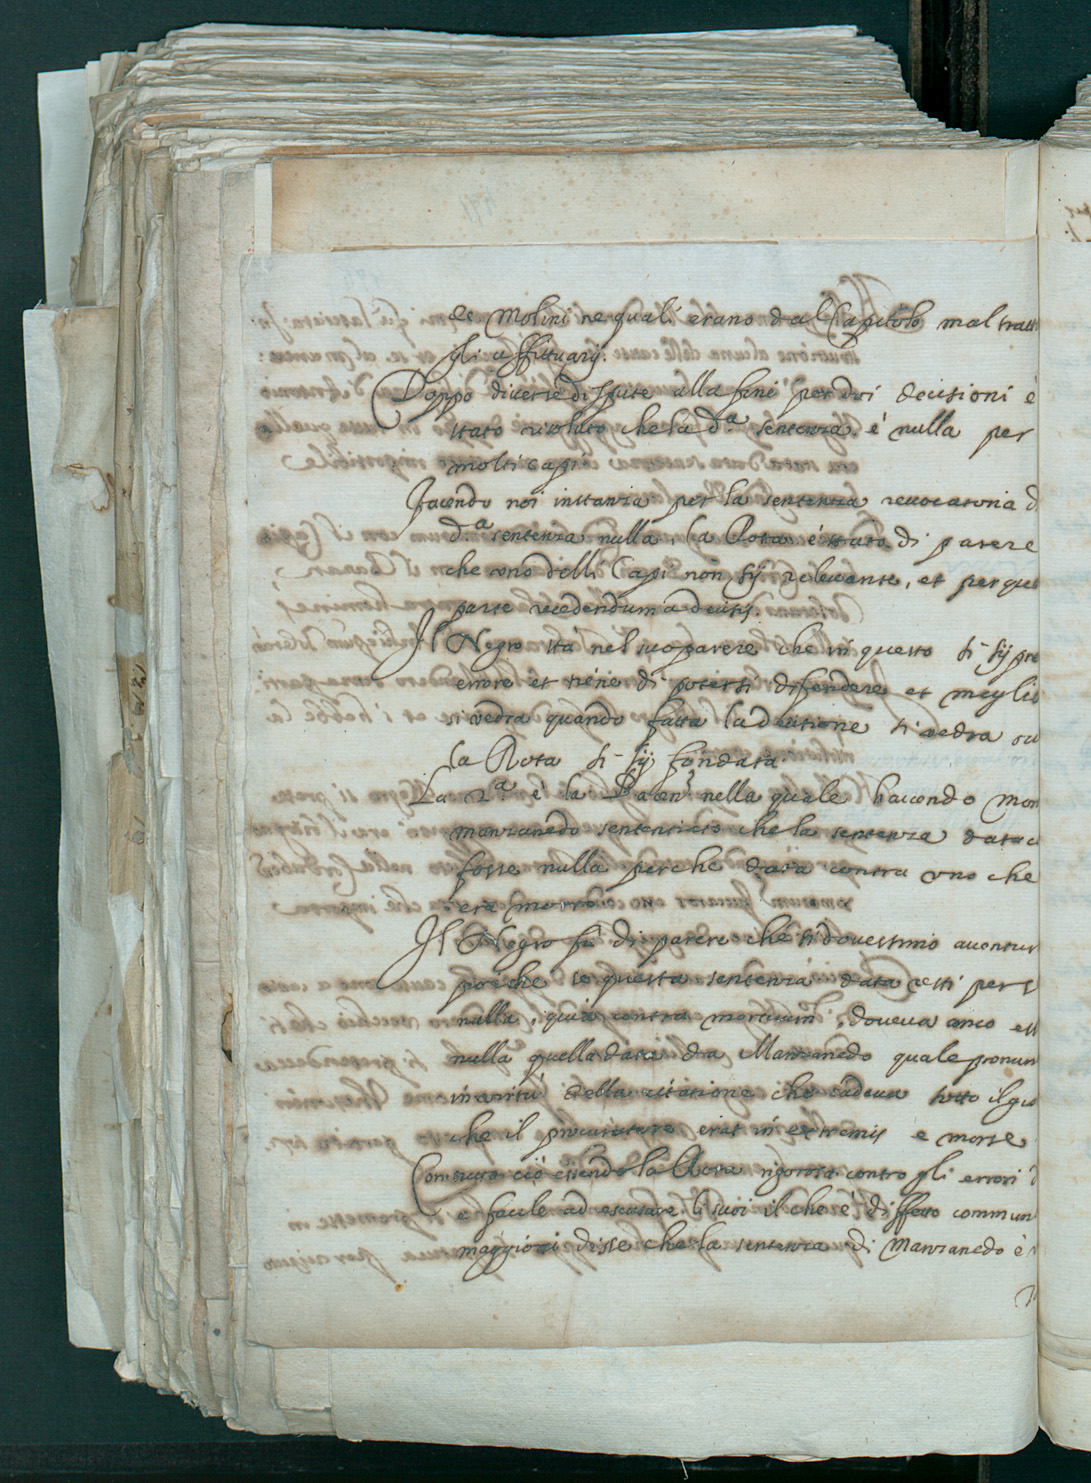 de Molini ne quali erano dal Capitolo mal tratt
gli affittuarij.
Doppo diverse dispute alla fine per doi decisioni è
stato risoluto che la d.ª sentenza è nulla per
molti capi
Facendo noi instanza per la sentenza revocatoria d
d.ª sentenza nulla, la Rota è stata di parere
che uno delli Capi non sij relevante, et per que
parte recedendum a decisis.
Il Negro stà nel suo parere che in questo si sij pre
errore et tiene di potersi difendere et meglio
si vedrà quando fatta la decisione si vedra su
la Rota si sij fondata
La 2.ª è la nella quale havendo Mon
manzanedo sententiato che la sentenza data c
fosse nulla perche data contra uno che
era morto
Il Negro fù di parere che si dovessimo
perche se questa sentenza data resti per s
nulla, quia contra mortuum, doveva anco ess
nulla quella data da Manzanedo quale pronun
in virtù della citatione che cadeva sotto il
che il procuratore erat in extremis e morse
Con tutto ciò essendo la Rota rigorosa contro gli errori d
e facile ad escusare li suoi il che è diffetto commun
maggiori disse che la sentenza di Manzanedo è